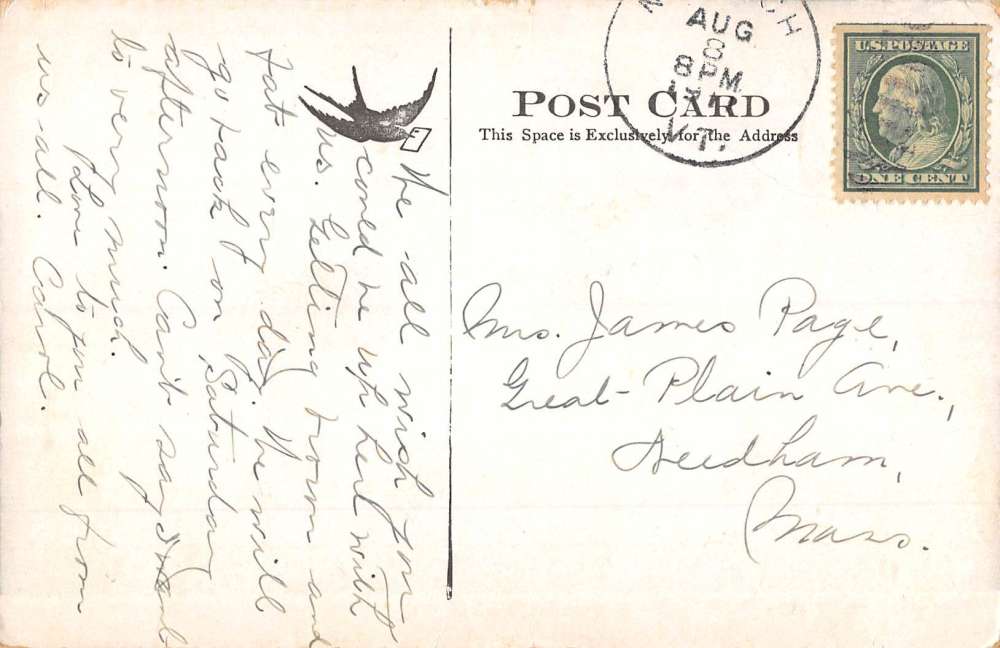 We all wish you
could be up here with
us. Getting brown and
fat every day. We will
go back on Saturday
afternoon. Can't say I want
to very much.
Love to you all from
us all. Carol.
POST CARD
This Space is Exclusively for the Address
AUG
8
8 PM
VT.
U.S. POSTAGE
ONE CENT
Mrs. James Page,
Great Plain Ave.,
Needham,
Mass.